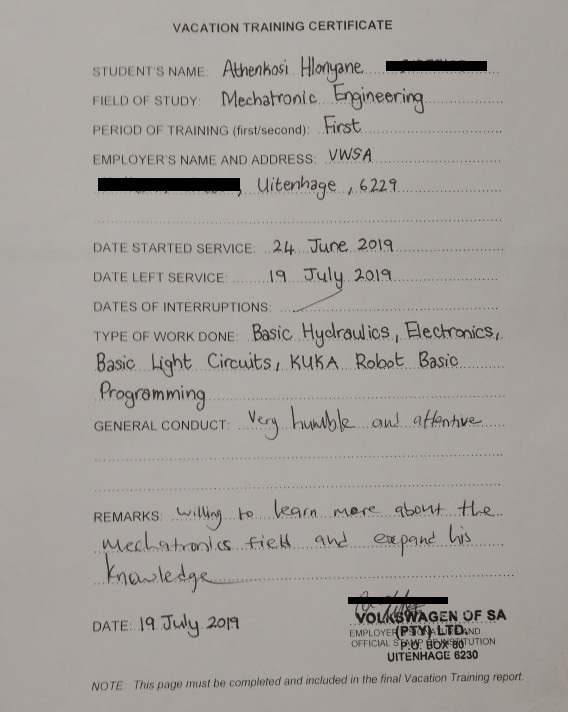 VACATION TRAINING CERTIFICATE
STUDENT'S NAME: Athenkosi Hlonyane
FIELD OF STUDY: Mechatronic Engineering
PERIOD OF TRAINING (first/second): First
EMPLOYER'S NAME AND ADDRESS: VWSA
, Uitenhage, 6229
DATE STARTED SERVICE: 24 June 2019
DATE LEFT SERVICE: 19 July 2019
DATES OF INTERRUPTIONS:
TYPE OF WORK DONE: Basic Hydraulics, Electronics,
Basic Light Circuits, KUKA Robot Basic
Programming
GENERAL CONDUCT: Very humble and attentive
REMARKS: willing to learn more about the
Mechatronics field and expand his
knowledge
DATE: 19 July 2019
VOLKSWAGEN OF SA
(PTY) LTD.
P.O. BOX 80
UITENHAGE 6230
EMPLOYER AND
OFFICIAL STAMP OF INSTITUTION
NOTE This page must be completed and included in the final Vacation Training report.